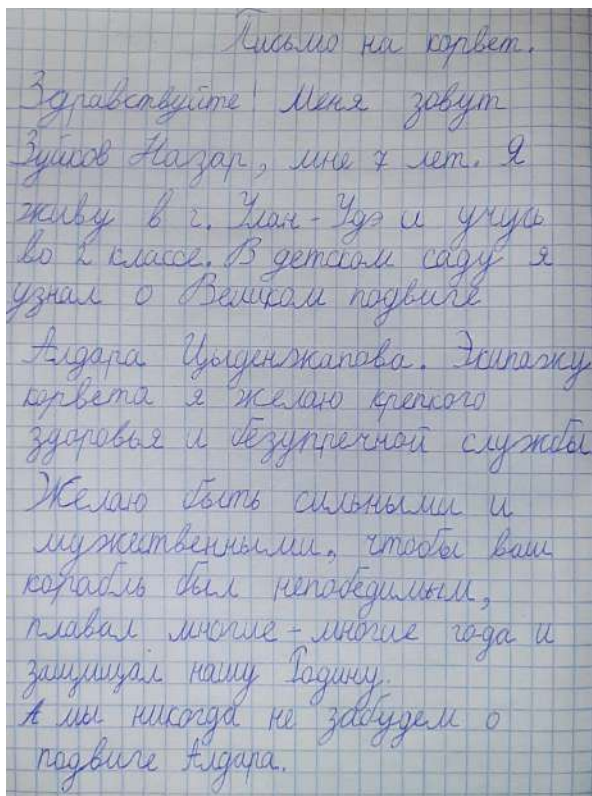 Письмо на корвет.
Здравствуйте! Меня зовут
Зуйков Назар, мне 7 лет. Я
живу в г. Улан-Удэ и учусь
во 2 классе. В детском саду я
узнал о Великом подвиге
Алдара Цыденжапова. Экипажу
корвета я желаю крепкого
здоровья и безупречной службы
Желаю быть сильными и
мужественными, чтобы ваш
корабль был непобедимым,
плавал многие-многие года и
защищал нашу Родину.
А мы никогда не забудем о
подвиге Алдара.